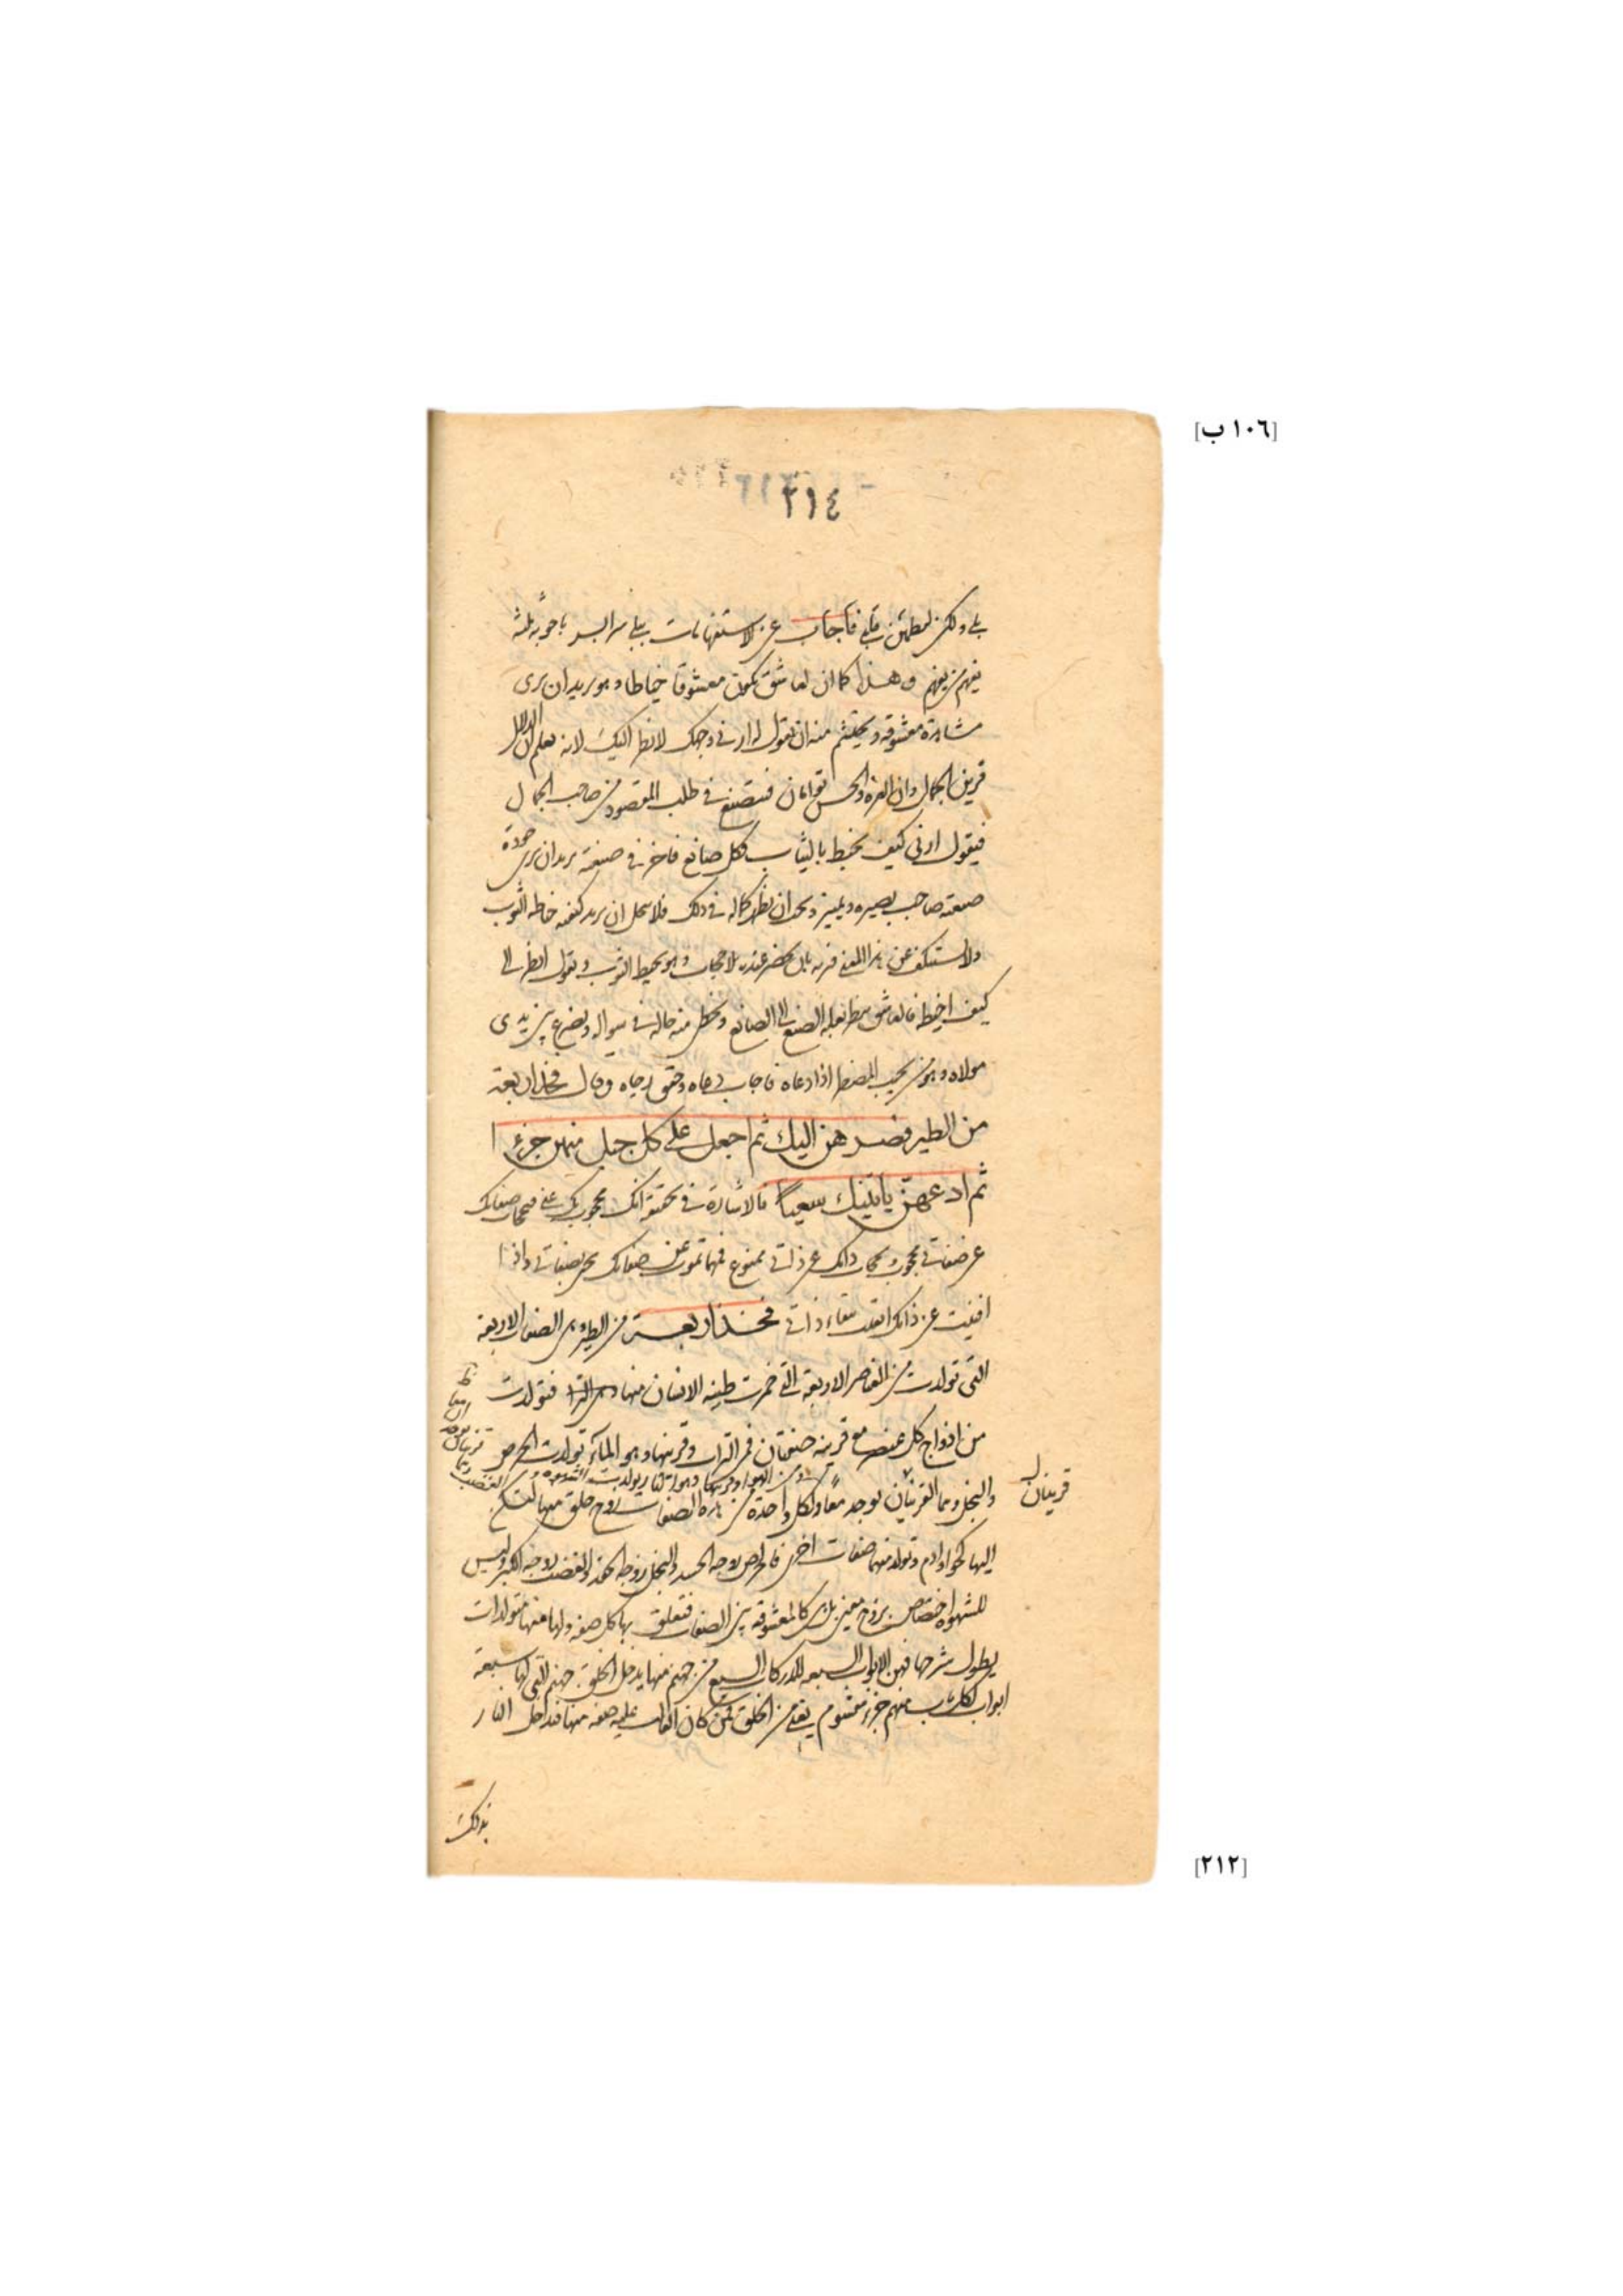 [١٠٦ ب]
٢١٤
بلى ولكن ليطمئن قلبي فأجاب عن الاستفهامات ببلى
يفهم من يفهم وهذا كما ان لعاشق يكون معشوقا خياطا وهو يريد ان يرى
مشاهدة معشوقه ويحتشم منه ان يقول له ارني وجهك لانظر اليك لانه يعلم ان الدلال
قرين الجمال وان العزة والحسن توأمان فيتصنع في طلب المقصود من صاحب الجمال
فيقول ارني كيف تخيط بالثياب فكل صانع فاخر في صنعته يريد ان يرى جودة
صنعته صاحب بصيره وتمييز ويحب ان يظهر كماله في ذلك فلا ان يريه كيفية خياطه الثوب
ولا يستنكف عن هذا المعنى بان يحضر عنده بلا حجاب وهو يخيط الثوب ويقول انظر الى
كيف اخيط فالعاشق ينظر بعلة الصنع الى الصانع ويحظى منه حاله في سؤاله وتضرع بين يدي
مولاه وهو من يجيب المضطر اذا دعاه فاجاب دعاه وحقق رجاه وقال فخذ اربعة
من الطير فصرهن اليك ثم اجعل على كل جبل منهن جزءا
ثم ادعهن يأتينك سعيا فالاشارة في تحقيقه انك محجوب بك عني فبحجاب صفاتك
عن صفاتي محجوب وبحجاب ذاتك عن ذاتي ممنوع فمهما تموت عن صفاتك تحيى بصفاتي واذا
افنيت عن ذاتك ابقيت ببقاء ذاتي فخذ اربعة من الطير هي الصفات الاربعة
التي تولدت من العناصر الاربعة التي خمرت طينة الانسان منها فتولدت
من ازدواج كل عنصر مع قرينه صفتان فمن التراب وقرينها وهو الماء تولدت الحرص
ومن الهواء وقرينها وهو النار تولدت الشهوة والغضب وهما
قرينان يوجد
ان معا
قرينان
والبخل وهما القرينان يوجد معا ولكل واحدة من هذه الصفات زوج خلق منها لتسكن
اليها كحوا وادم وتولد منهما صفات اخرى فالحرص زوجه الحسد والبخل زوجه الحقد والغضب زوجه الكبر وليس
للشهوة اختصاص بزوج معين بل هي كالمعشوقة بين الصفات فتعلق بها كل صفة ولها منها متولدات
يطول شرحها فهن الابواب السبعة للدركات السبع من جهنم منها يدخل الخلق جهنم التي لها سبعة
ابواب لكل باب منهم جزء مقسوم يعني من الخلق فمن كان الغالب عليه صفة منها فيدخل النار
بذلك
[٢١٢]